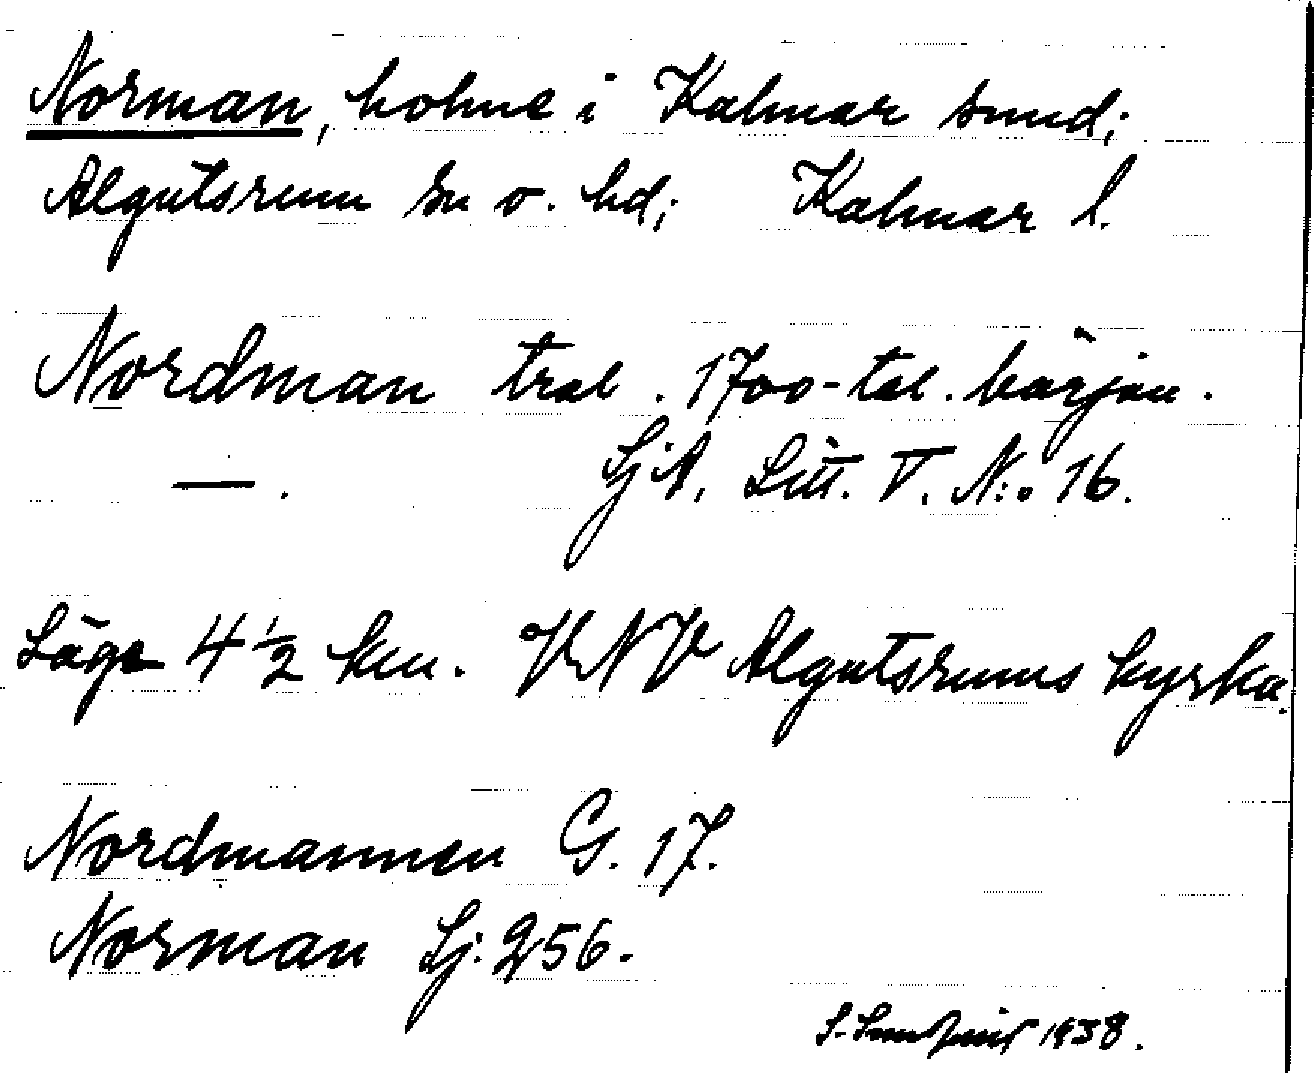 Norman, holme i Kalmar sund;
Algutsrum sn o. hd; Kalmar l.
Nordman tral. 1700-tal. början.
— . SjA. Litt. V. N:o 16.
Läge 4 1/2 km. VNV Algutsrums kyrka.
Nordmannen G. 17.
Norman Sj. 256.
S. 1938.